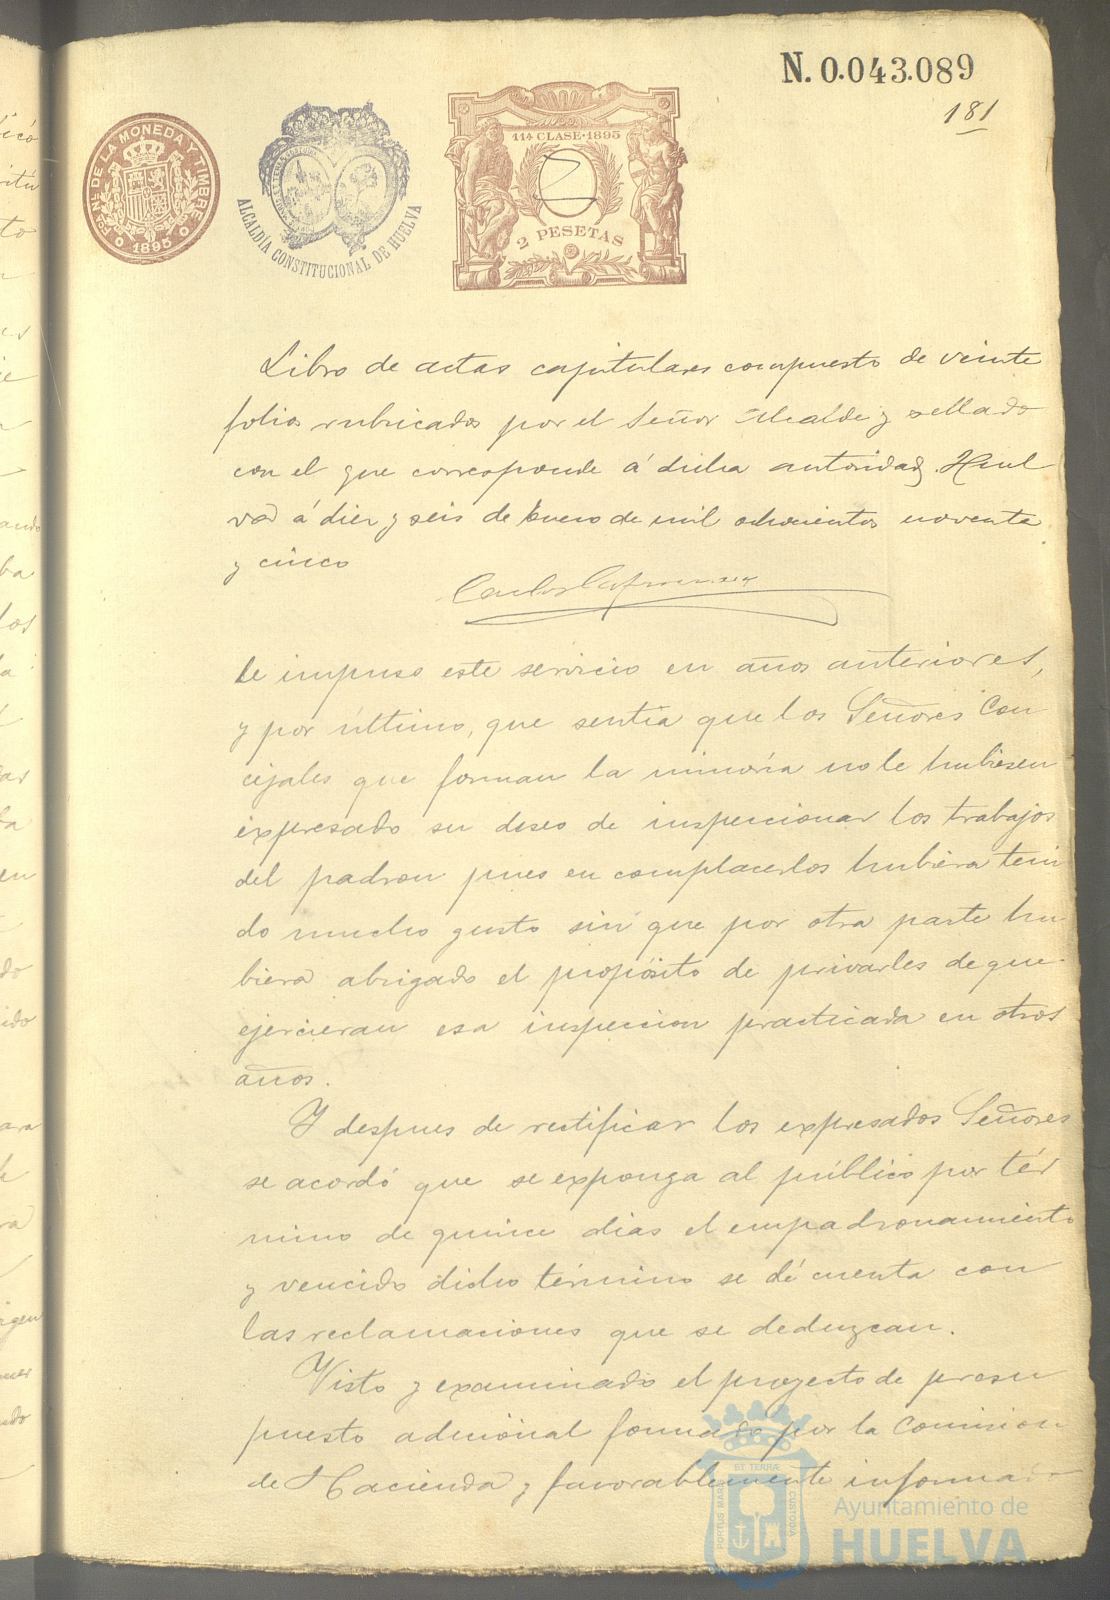 N. 0.043.089
181
FÁB. NAL. DE LA MONEDA Y TIMBRE
1895
ALCALDÍA CONSTITUCIONAL DE HUELVA
11ª CLASE·1895
2 PESETAS
Libro de actas capitulares compuesto de veinte
folios rubricados por el Señor Alcalde y sellado
con el que corresponde á dicha autoridad. Huel
va á diez y seis de Enero de mil ochocientos noventa
y cinco
Carlos
se impuso este servicio en años anteriores,
y por último, que sentia que los Señores Con
cejales que forman la minoria no le hubiesen
expresado su deseo de inspeccionar los trabajos
del padron pues en complacerlos hubiera teni
do mucho gusto sin que por otra parte hu-
biera abrigado el propósito de privarles de que
ejercieran esa inspeccion practicada en otros
años.
Y despues de rectificar los expresados Señores
se acordó que se exponga al público por tér
mino de quince dias el empadronamiento
y vencido dicho término se dé cuenta con
las reclamaciones que se deduzcan.
Visto y examinado el proyecto de presu
puesto adicional formado por la Comision
de Hacienda y favorablemente informado
PORTUS MARIS ET TERRAE CUSTODIA
Ayuntamiento de
HUELVA